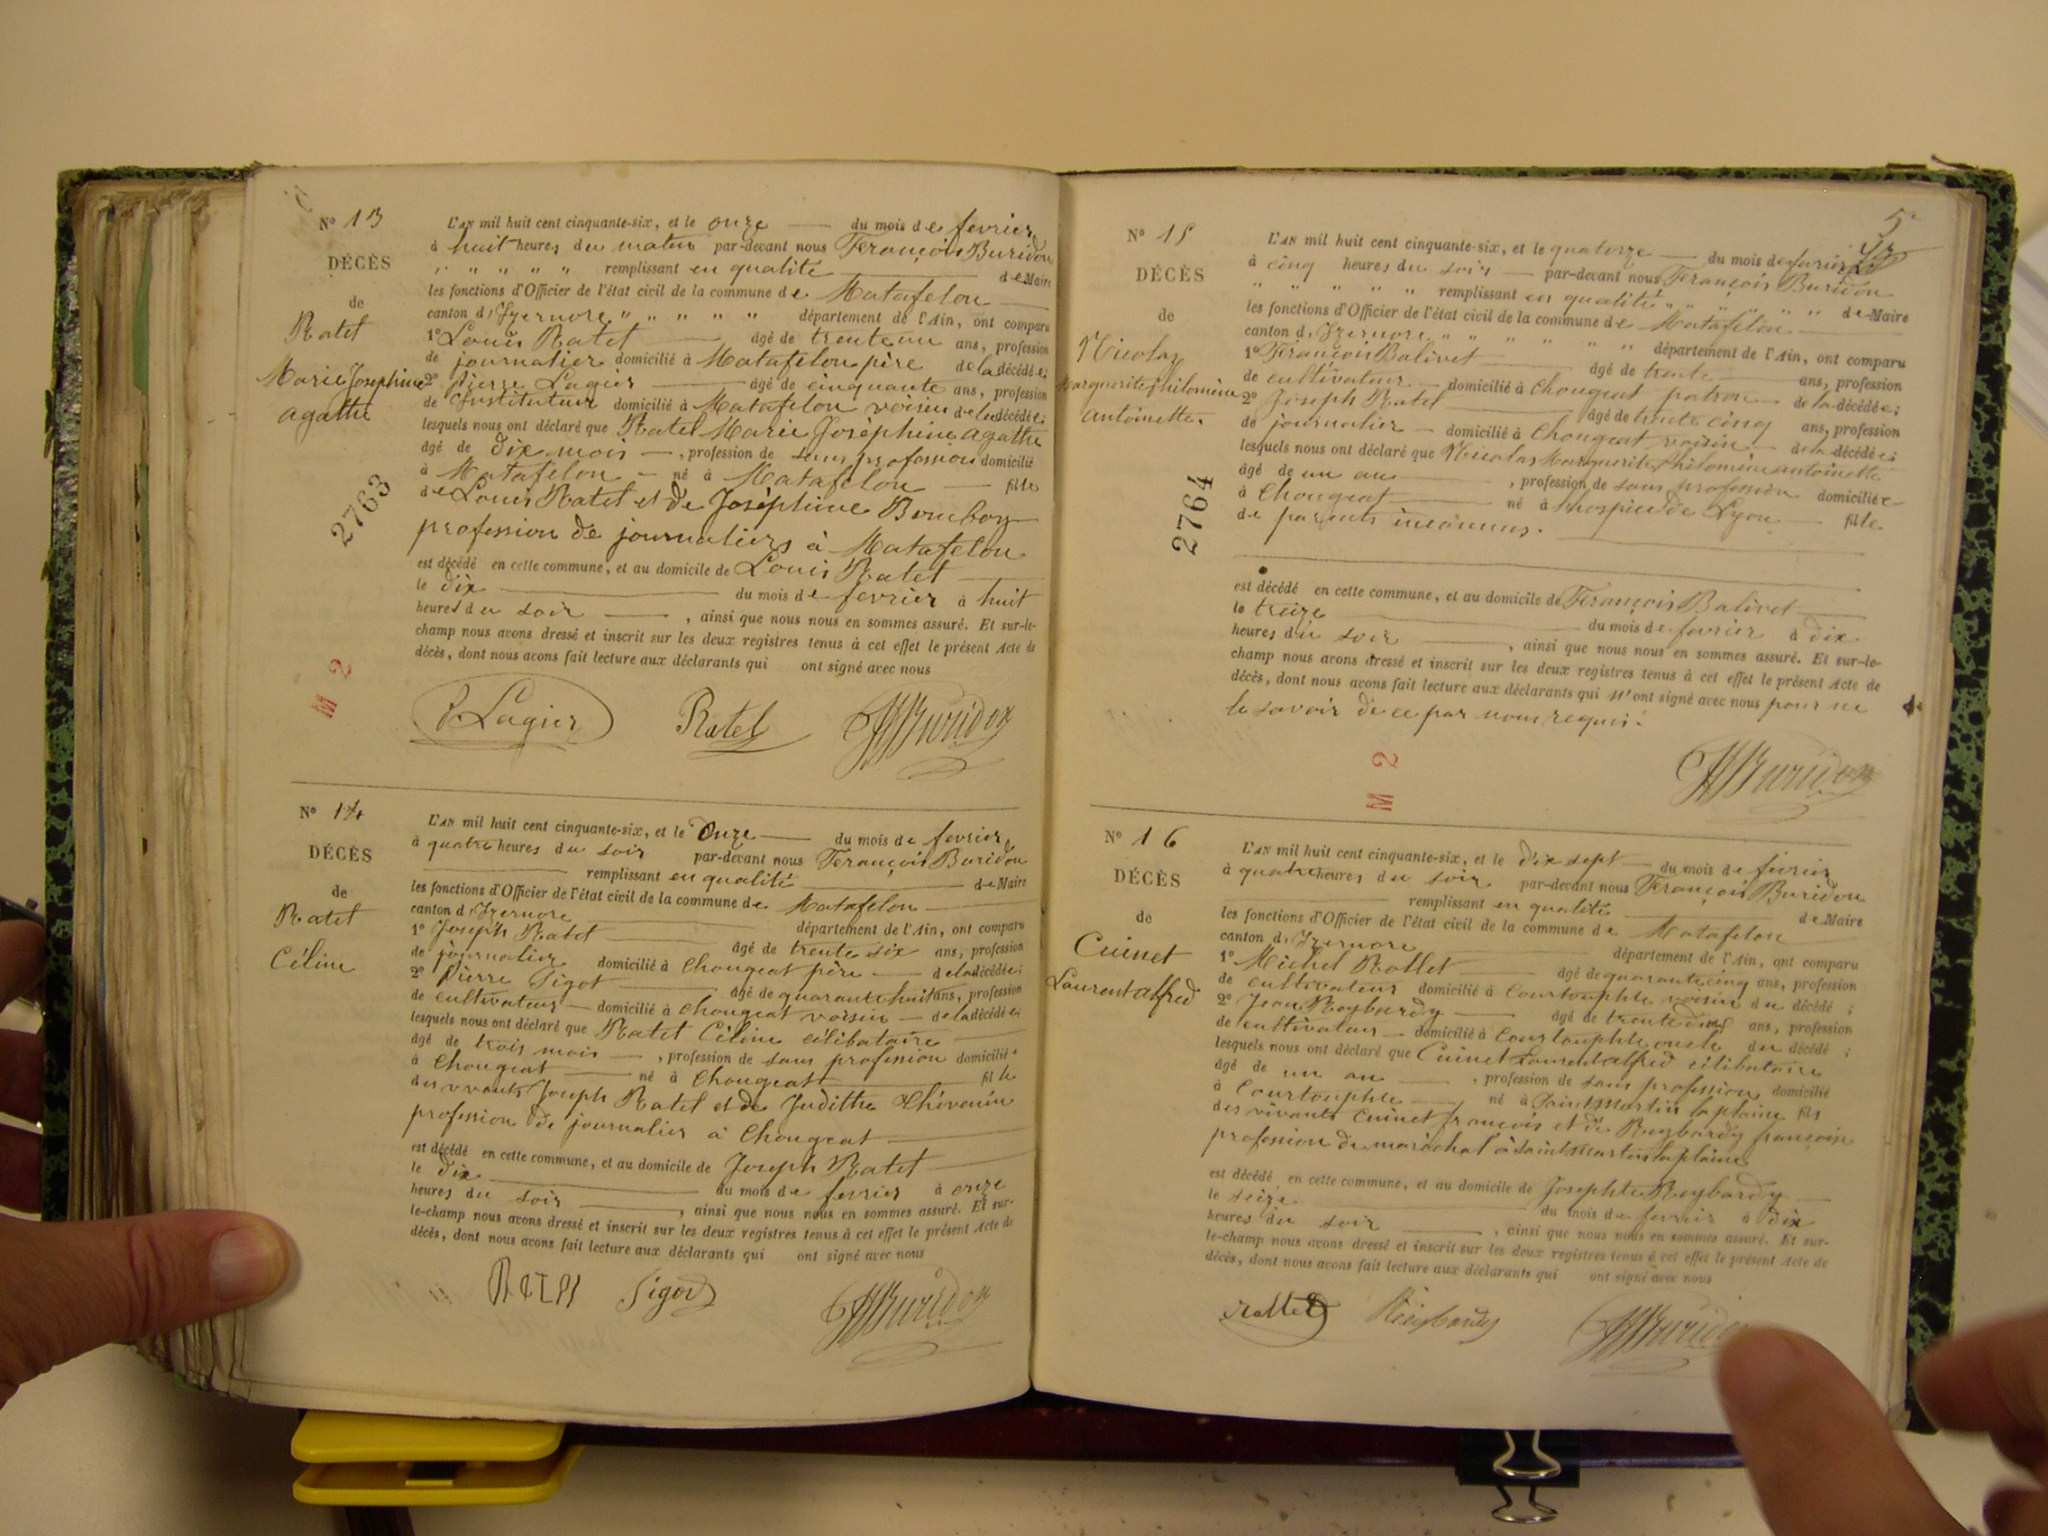 Nº 13
DÉCÈS
de
Ratet
Marie Joséphine
agathe
2763
M 2
L'AN mil huit cent cinquante-six, et le onze du mois de fevrier
à huit heures du matin par-devant nous François Buridon
" " " " " remplissant en qualité de Maire
les fonctions d'Officier de l'état civil de la commune de Matafelon
canton d'Izernore " " " " " département de l'Ain, ont comparu
1º Louis Ratet âgé de trente un ans, profession
de journalier domicilié à Matafelon père de la décédée;
2º Pierre Lagier âgé de cinquante ans, profession
de Instituteur domicilié à Matafelon voisin de la décédée;
lesquels nous ont déclaré que Ratet Marie Joséphine agathe
âgé de dix mois, profession de sans profession domicilié
à Matafelon né à Matafelon fille
de Louis Ratet et de Joséphine Bomboy
profession de journaliers à Matafelon
est décédé en cette commune, et au domicile de Louis Ratet
le dix du mois de fevrier à huit
heures du soir, ainsi que nous nous en sommes assuré. Et sur-le-
champ nous avons dressé et inscrit sur les deux registres tenus à cet effet le présent Acte de
décès, dont nous avons fait lecture aux déclarants qui ont signé avec nous
P. Lagier Ratet Buridon
Nº 14
DÉCÈS
de
Ratet
Céline
L'AN mil huit cent cinquante-six, et le Onze du mois de fevrier
à quatre heures du soir par-devant nous François Buridon
remplissant en qualité de Maire
les fonctions d'Officier de l'état civil de la commune de Matafelon
canton d'Izernore département de l'Ain, ont comparu
1º Joseph Ratet âgé de trente six ans, profession
de journalier domicilié à Chougeat père de la décédée;
2º Pierre Sigot âgé de quarante huit ans, profession
de cultivateur domicilié à Chougeat voisin de la décédée;
lesquels nous ont déclaré que Ratet Céline célibataire
âgé de trois mois, profession de sans profession domicilié
à Chougeat né à Chougeat fille
des vivants Joseph Ratet et de Judithe Thévenin
profession de journalier à Chougeat
est décédé en cette commune, et au domicile de Joseph Ratet
le dix du mois de fevrier à onze
heures du soir, ainsi que nous nous en sommes assuré. Et sur-
le-champ nous avons dressé et inscrit sur les deux registres tenus à cet effet le présent Acte de
décès, dont nous avons fait lecture aux déclarants qui ont signé avec nous
Sigot Buridon
5
Nº 15
DÉCÈS
de
Nicolas
Marguerite philomène
antoinette.
2764
L'AN mil huit cent cinquante-six, et le quatorze du mois de fevrier
à cinq heures du soir par-devant nous François Buridon
" " " " " remplissant en qualité " " " " de Maire
les fonctions d'Officier de l'état civil de la commune de Matafelon
canton d'Izernore " " " " " " département de l'Ain, ont comparu
1º François Balivet âgé de trente ans, profession
de cultivateur domicilié à Chougeat patron de la décédée;
2º Joseph Ratet âgé de trente cinq ans, profession
de journalier domicilié à Chougeat voisin de la décédée;
lesquels nous ont déclaré que Nicolas Marguerite philomène antoinette
âgé de un an, profession de sans profession domiciliée
à Chougeat né à l'hospice de Lyon fille
de parents inconnus.
est décédé en cette commune, et au domicile de François Balivet
le treize du mois de fevrier à dix
heures du soir, ainsi que nous nous en sommes assuré. Et sur-le-
champ nous avons dressé et inscrit sur les deux registres tenus à cet effet le présent Acte de
décès, dont nous avons fait lecture aux déclarants qui n'ont signé avec nous pour ne
le savoir de ce par nous requis.
Buridon
M 2
Nº 16
DÉCÈS
de
Cuinet
Laurent alfred
L'AN mil huit cent cinquante-six, et le dix sept du mois de fevrier
à quatre heures du soir par-devant nous François Buridon
remplissant en qualité de Maire
les fonctions d'Officier de l'état civil de la commune de Matafelon
canton d'Izernore département de l'Ain, ont comparu
1º Michel Rollet âgé de quarante cinq ans, profession
de cultivateur domicilié à Courtouphle voisin du décédé;
2º Jean Reybardy âgé de trente deux ans, profession
de cultivateur domicilié à Courtouphle oncle du décédé;
lesquels nous ont déclaré que Cuinet Laurent alfred célibataire
âgé de un an, profession de sans profession domicilié
à Courtouphle né à Saint Martin la plaine fils
des vivants Cuinet françois et de Reybardy françoise
profession de maréchal à Saint Martin la plaine
est décédé en cette commune, et au domicile de Josephte Reybardy
le seize du mois de fevrier à dix
heures du soir, ainsi que nous nous en sommes assuré. Et sur-
le-champ nous avons dressé et inscrit sur les deux registres tenus à cet effet le présent Acte de
décès, dont nous avons fait lecture aux déclarants qui ont signé avec nous
Rollet Reybardy Buridon